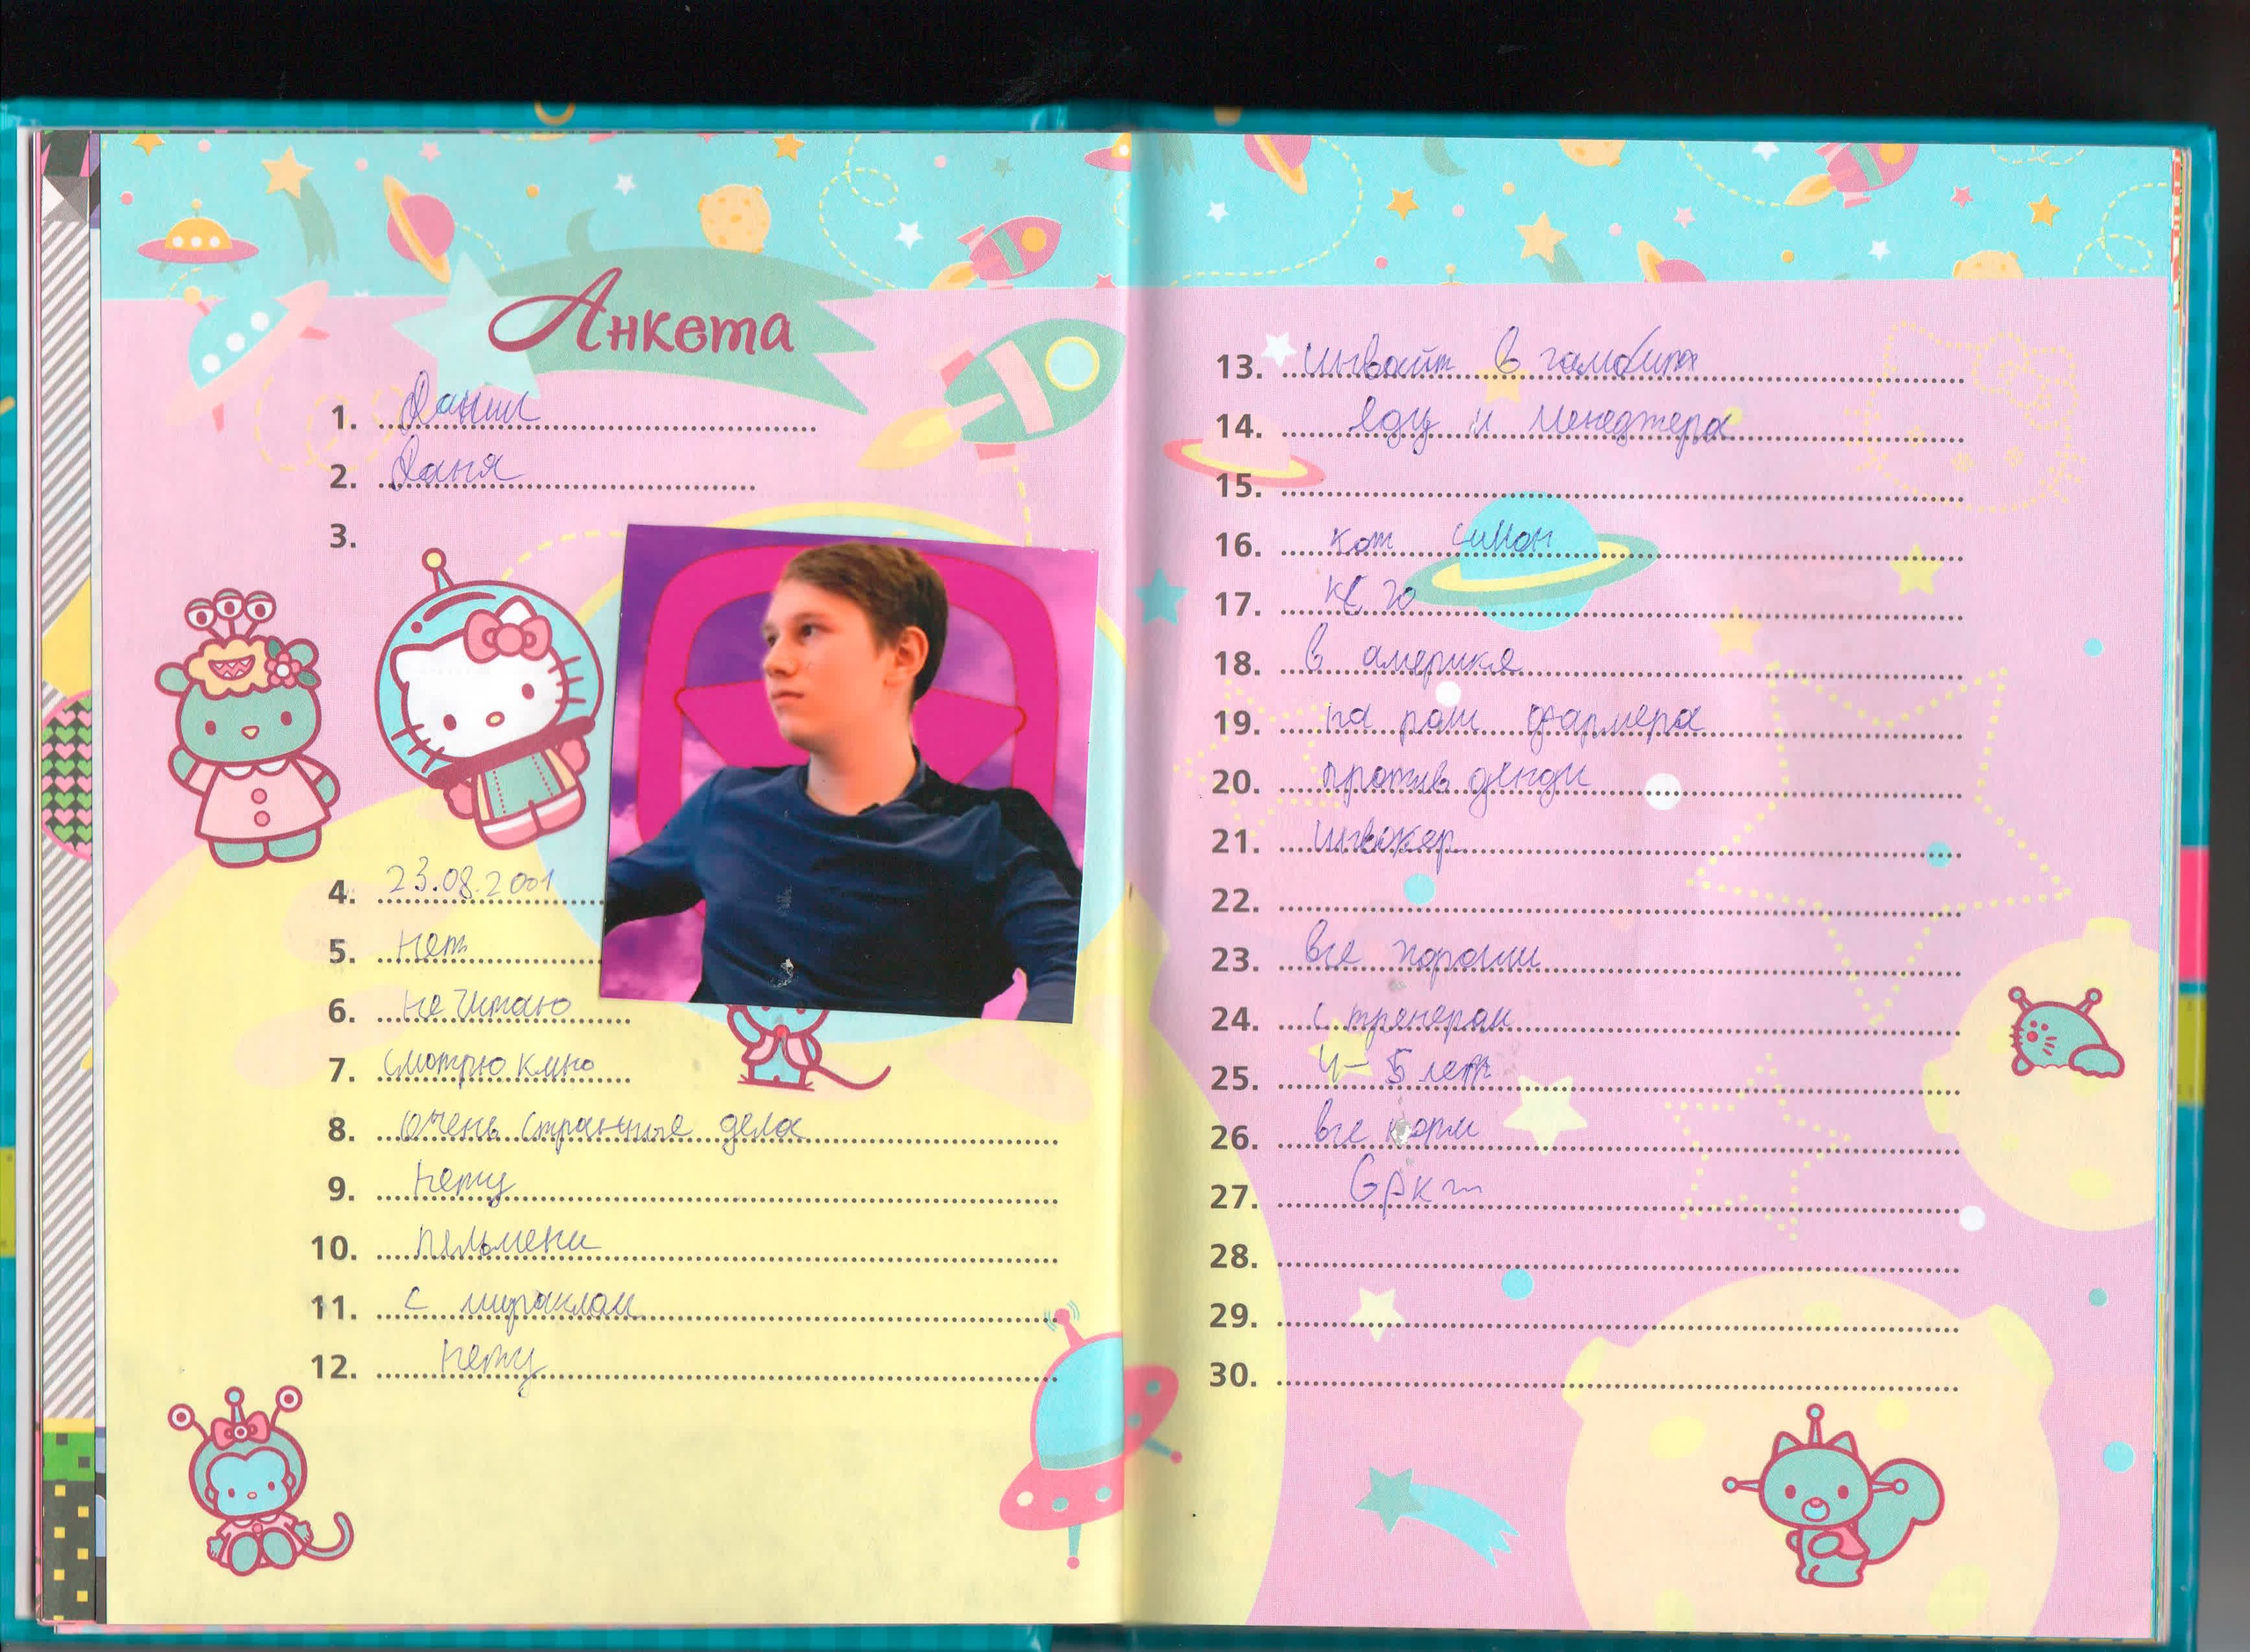 Анкета
1. Данил
2. Даня
3.
4. 23.08.2001
5. нет
6. не читаю
7. смотрю кино
8. очень странные дела
9. нету
10. пельмени
11. с мираклом
12. нету
13. инвайт в гамбит
14. еду и менеджера
15.
16. кот симон
17. кс го
18. в америке
19. на раш фармера
20. против денди
21. инвокер
22.
23. все хороши
24. с тренером
25. 4-5 лет
26. все норм
27.
28.
29.
30.